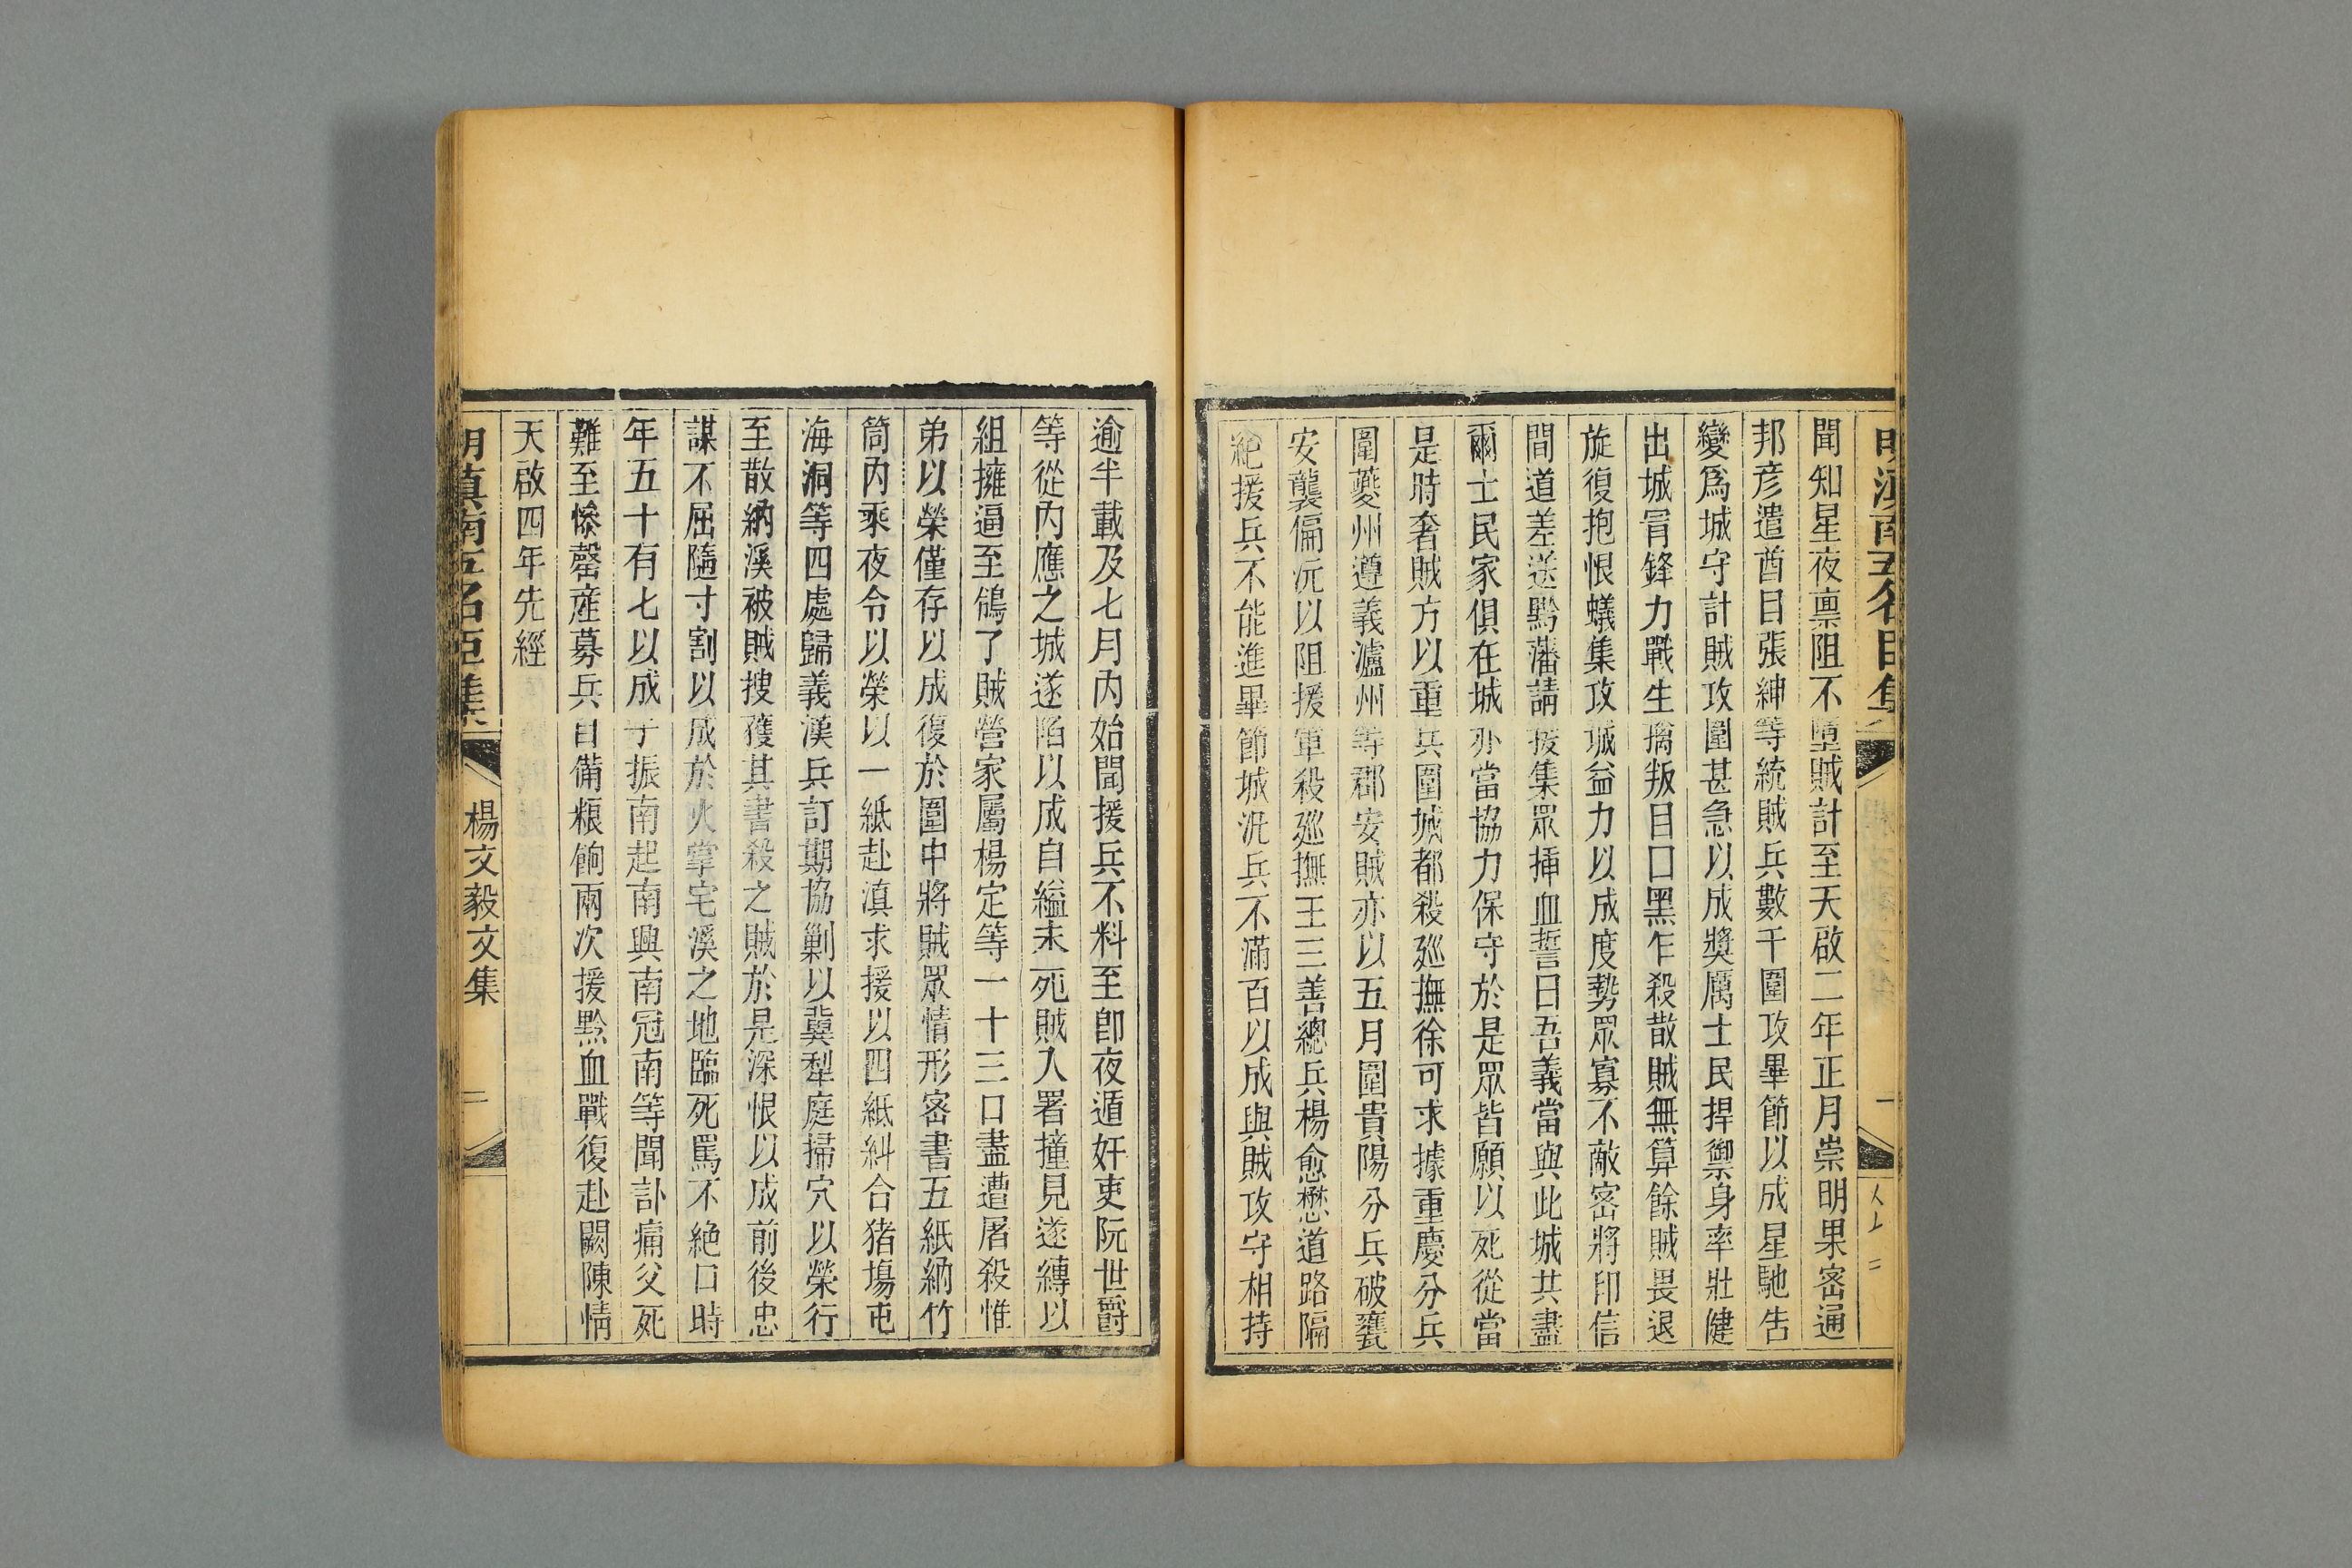 聞知星夜禀阻不墮賊計至天啟二年正月崇明果密通
邦彦遣酋目張紳等統賊兵數千圍攻畢節以成星馳告
變爲城守計賊攻圍甚急以成奬厲士民捍禦身率壯健
出城冐鋒力戰生擒叛目口黑乍殺散賊無算餘賊畏退
旋復抱恨蟻集攻城益力以成度勢眾寡不敵密將印信
間道差送黔藩請援集眾揷血誓曰吾義當與此城共盡
爾士民家俱在城亦當協力保守於是眾皆願以死從當
是時奢賊方以重兵圍城都殺廵撫徐可求據重慶分兵
圍夔州遵義瀘州等郡安賊亦以五月圍貴陽分兵破甕
安襲偏沅以阻援軍殺廵撫王三善總兵楊愈懋道路隔
絶援兵不能進畢節城況兵不滿百以成與賊攻守相持
逾半載及七月内始聞援兵不料至卽夜遁奸吏阮世爵
等從内應之城遂陷以成自縊未死賊入署撞見遂縛以
組擁逼至鴿了賊營家屬楊定等一十三口盡遭屠殺惟
弟以榮僅存以成復於圍中將賊眾情形密書五紙納竹
筒内乘夜令以榮以一紙赴滇求援以四紙糾合猪塲屯
海洞等四處歸義漢兵訂期協剿以冀犁庭掃穴以榮行
至散納溪被賊搜獲其書殺之賊於是深恨以成前後忠
謀不屈隨寸割以成於火掌宅溪之地臨死罵不絶口時
年五十有七以成子振南起南興南冠南等聞訃痛父死
難至慘罄産募兵自備粮餉兩次援黔血戰復赴闕陳情
天啟四年先經
明滇南五名臣集
楊文毅文集
二